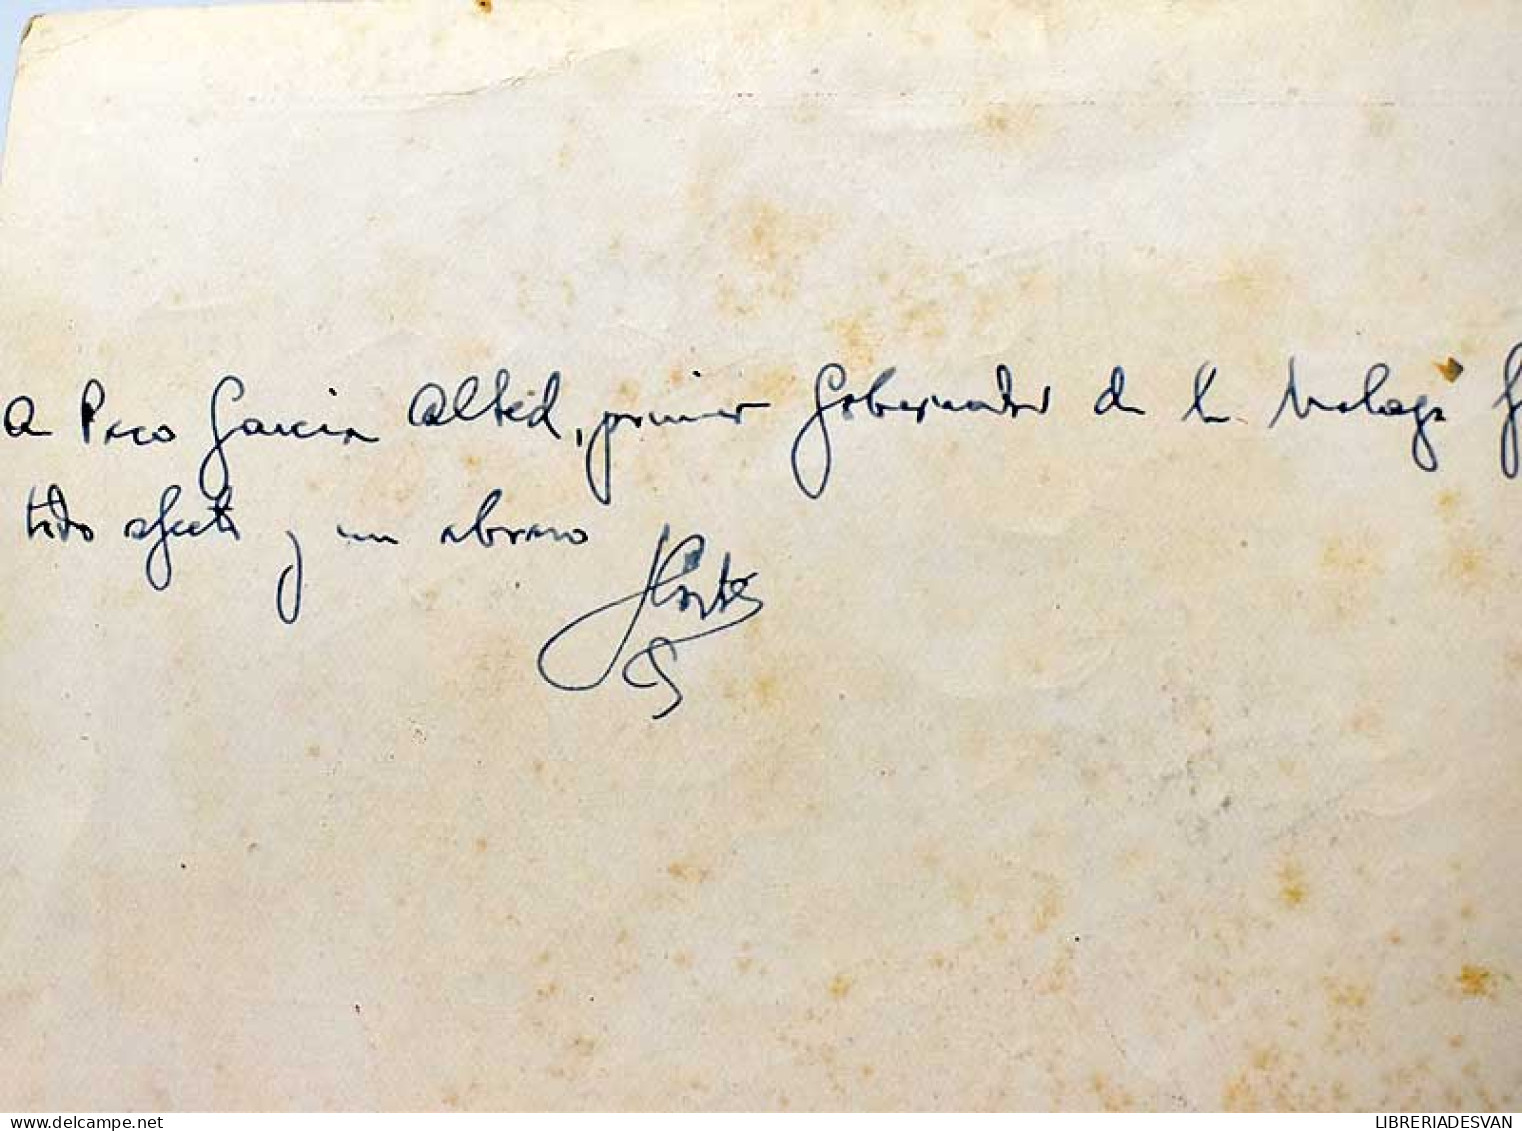 A Paco Garcia Alted, primer Gobernador de la Malaga
todo afecto y un abrazo
LIBRERIADESVAN